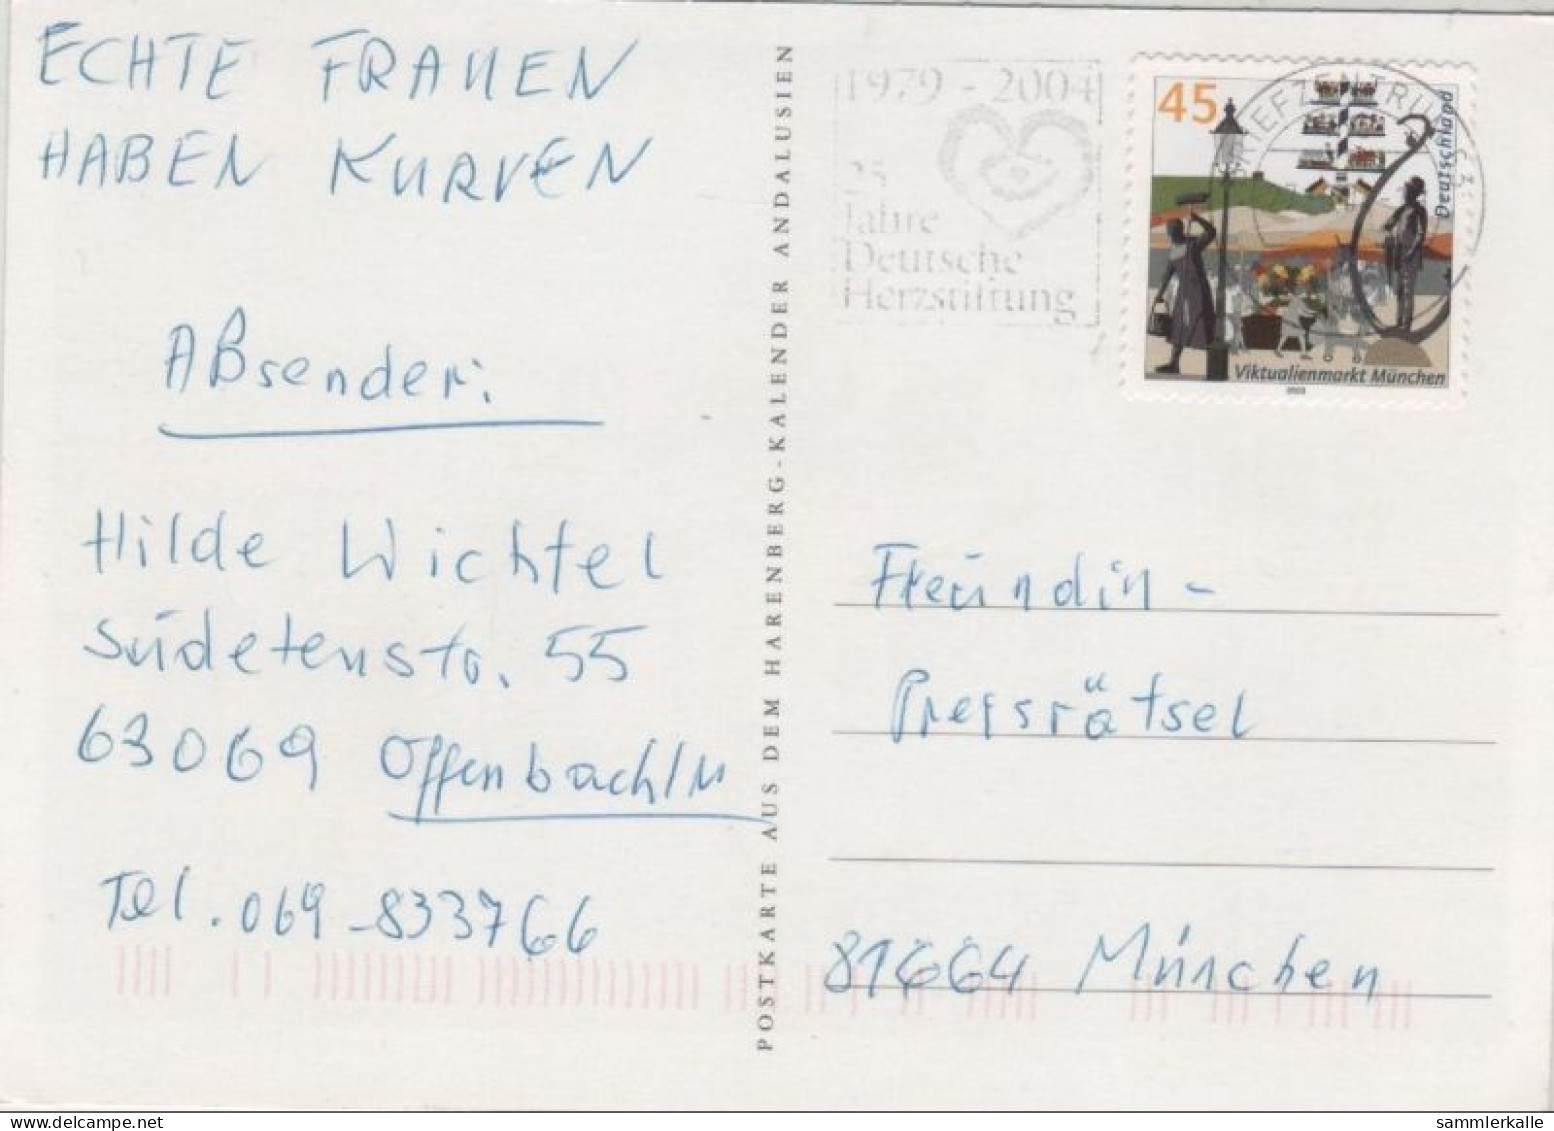 ECHTE FRAUEN
HABEN KURVEN
Absender:
Hilde Wichtel
Südetenstr. 55
63069 Offenbach/M
Tel. 069-833766
POSTKARTE AUS DEM HARENBERG-KALENDER ANDALUSIEN
1979 - 2004
25
Jahre
Deutsche
Herzstiftung
45
Deutschland
Viktualienmarkt München
2003
BRIEFZENTRUM 63
Freundin-
Preisrätsel
81664 München
sammlerkalle